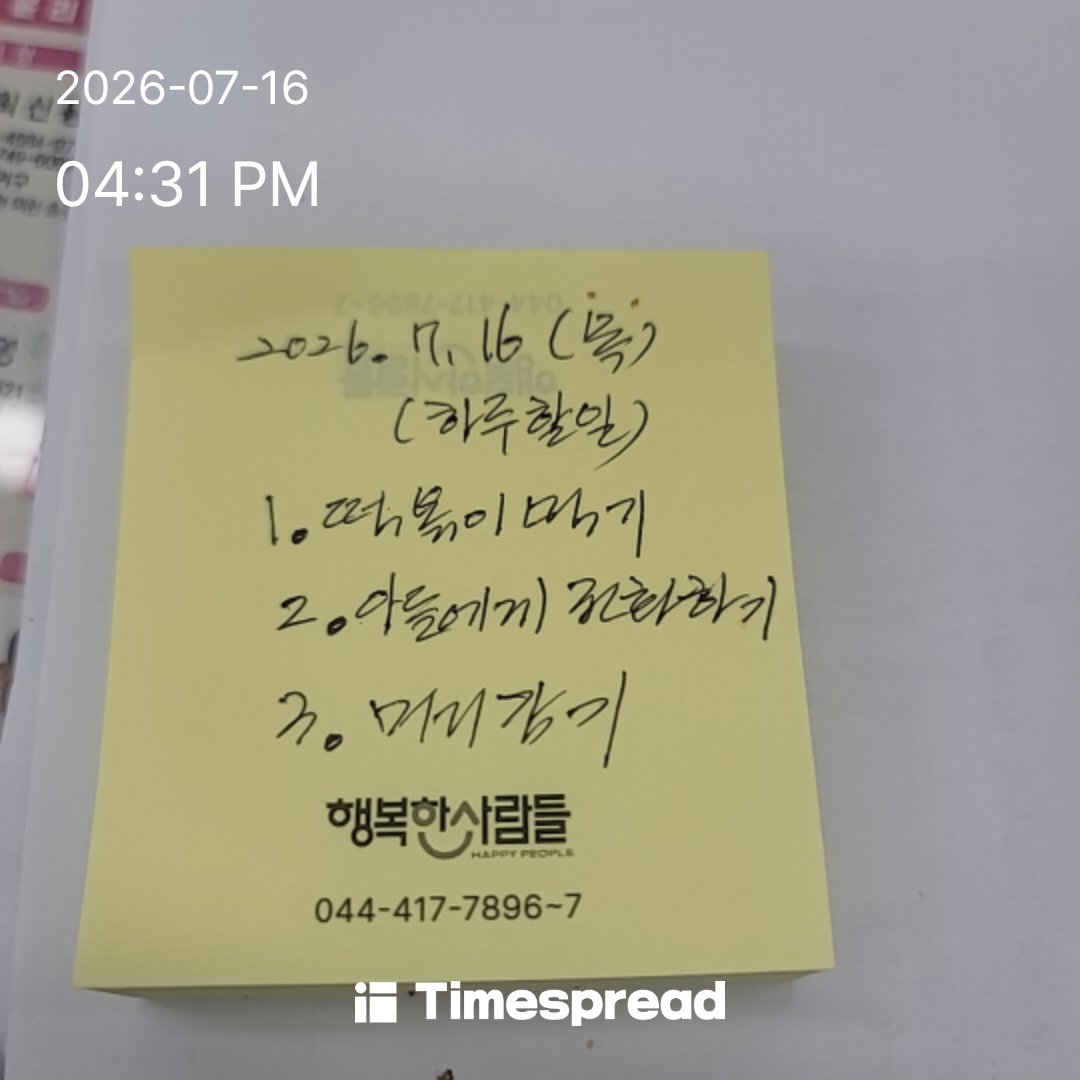 2026-07-16
04:31 PM
2026. 7. 16 (목)
(하루할일)
1. 떡볶이 먹기
2. 아들에게 전화하기
3. 머리감기
행복한사람들
HAPPY PEOPLE
044-417-7896~7
Timespread